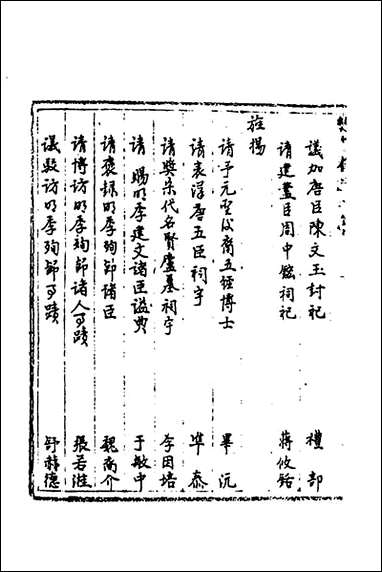 議加唐臣陳文玉封祀 禮部
請建蓋臣周中鋐祠祀 蔣攸銛
旌揚
請予元聖後裔五經博士 畢沅
請表浮唐五臣祠宇 準泰
請奬宋代名賢廬墓祠宇 李因培
請賜明季建文諸臣謚典 于敏中
請褒録明季殉節諸臣 魏裔介
請博訪明季殉節諸人事蹟 張若溎
議敕訪明季殉節事蹟 舒赫德